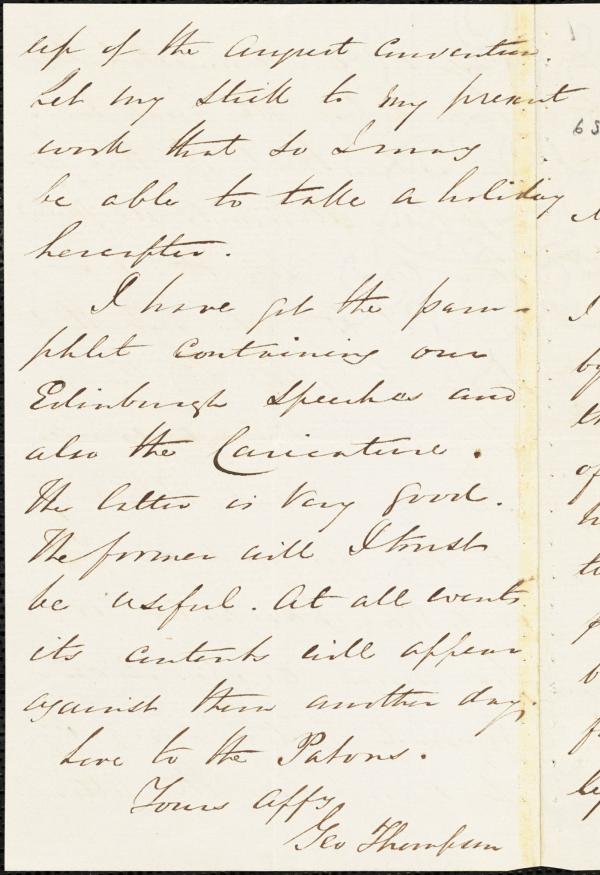 up of the August Convention.
Let my stick to my present
work that so I may
be able to take a holiday
hereafter.
I have got the pam-
phlet containing our
Edinburgh Speeches and
also the Caricature.
The latter is very good.
The former will I trust
be useful. At all events
its contents will appear
against them another day.
Love to the Patons.
Yours affy
Geo Thompson